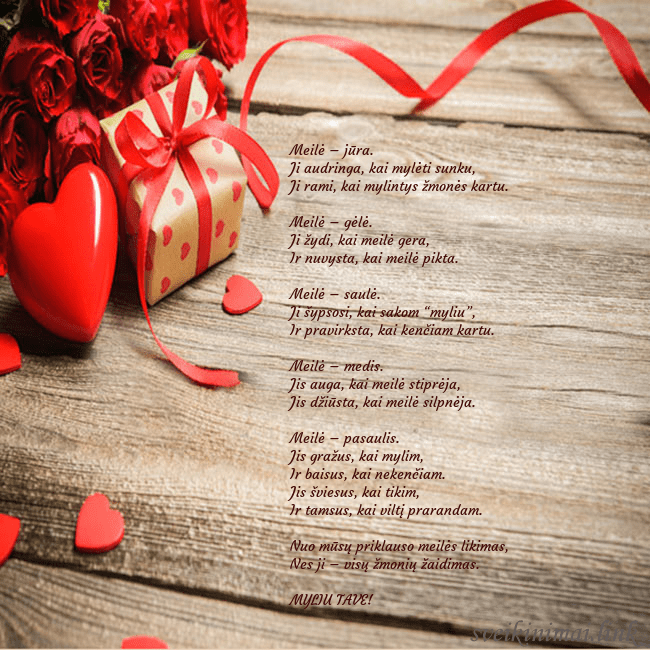 Meilė – jūra.
Ji audringa, kai mylėti sunku,
Ji rami, kai mylintys žmonės kartu.
Meilė – gėlė.
Ji žydi, kai meilė gera,
Ir nuvysta, kai meilė pikta.
Meilė – saulė.
Ji šypsosi, kai sakom “myliu”,
Ir pravirksta, kai kenčiam kartu.
Meilė – medis.
Jis auga, kai meilė stiprėja,
Jis džiūsta, kai meilė silpnėja.
Meilė – pasaulis.
Jis gražus, kai mylim,
Ir baisus, kai nekenčiam.
Jis šviesus, kai tikim,
Ir tamsus, kai viltį prarandam.
Nuo mūsų priklauso meilės likimas,
Nes ji – visų žmonių žaidimas.
MYLIU TAVE!